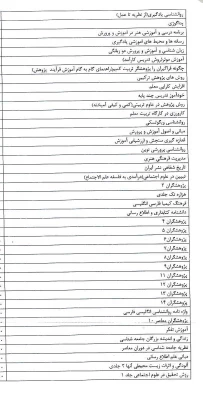 روانشناسی یادگیری(از نظریه تا عمل)
پداگوژی
برنامه درسی و آموزشی هنر در آموزش و پرورش
رسانه ها و محیط های آموزشی یادگیری
زبان شناسی و آموزش و پرورش دو زبانگی
آموزش موثر(روش تدریس کارآمد)
روش های پژوهش ترکیبی
افزایش کارایی معلم
خودآموز تدریس چند پایه
روش پژوهش در علوم تربیتی(کمی و کیفی آمیخته)
کارورزی در کارگاه تربیت معلم
روانشناسی ویگوتسکی
مبانی و اصول آموزش و پرورش
اندازه گیری سنجش و ارزشیابی آموزش
روانشناسی پرورشی نوین
مدیریت فرهنگی هنری
تاریخ شفاهی نشر ایران
تبیین در علوم اجتماعی(درآمدی به فلسفه علم الاجتماع)
پژوهشگران ۲
هزاره تک جلدی
فرهنگ کیمیا فارسی انگلیسی
دانشنامه کتابداری و اطلاع رسانی
پژوهشگران ۴
پژوهشگران ۵
پژوهشگران ۶
پژوهشگران ۷
پژوهشگران ۸
پژوهشگران ۹
پژوهشگران ۱۱
پژوهشگران ۱۲
پژوهشگران ۱۳
پژوهشگران ۱۴
واژه نامه روانشناسی انگلیسی فارسی
پژوهشگران معاصر ۱۰
آموزش تفکر
زندگی و اندیشه بزرگان جامعه شناسی
نظریه جامعه شناسی در دوران معاصر
مبانی علم اطلاع رسانی
آلودگی و اثرات زیست محیطی آنها ۲ جلدی
روش تحقیق در علوم اجتماعی جلد ۱